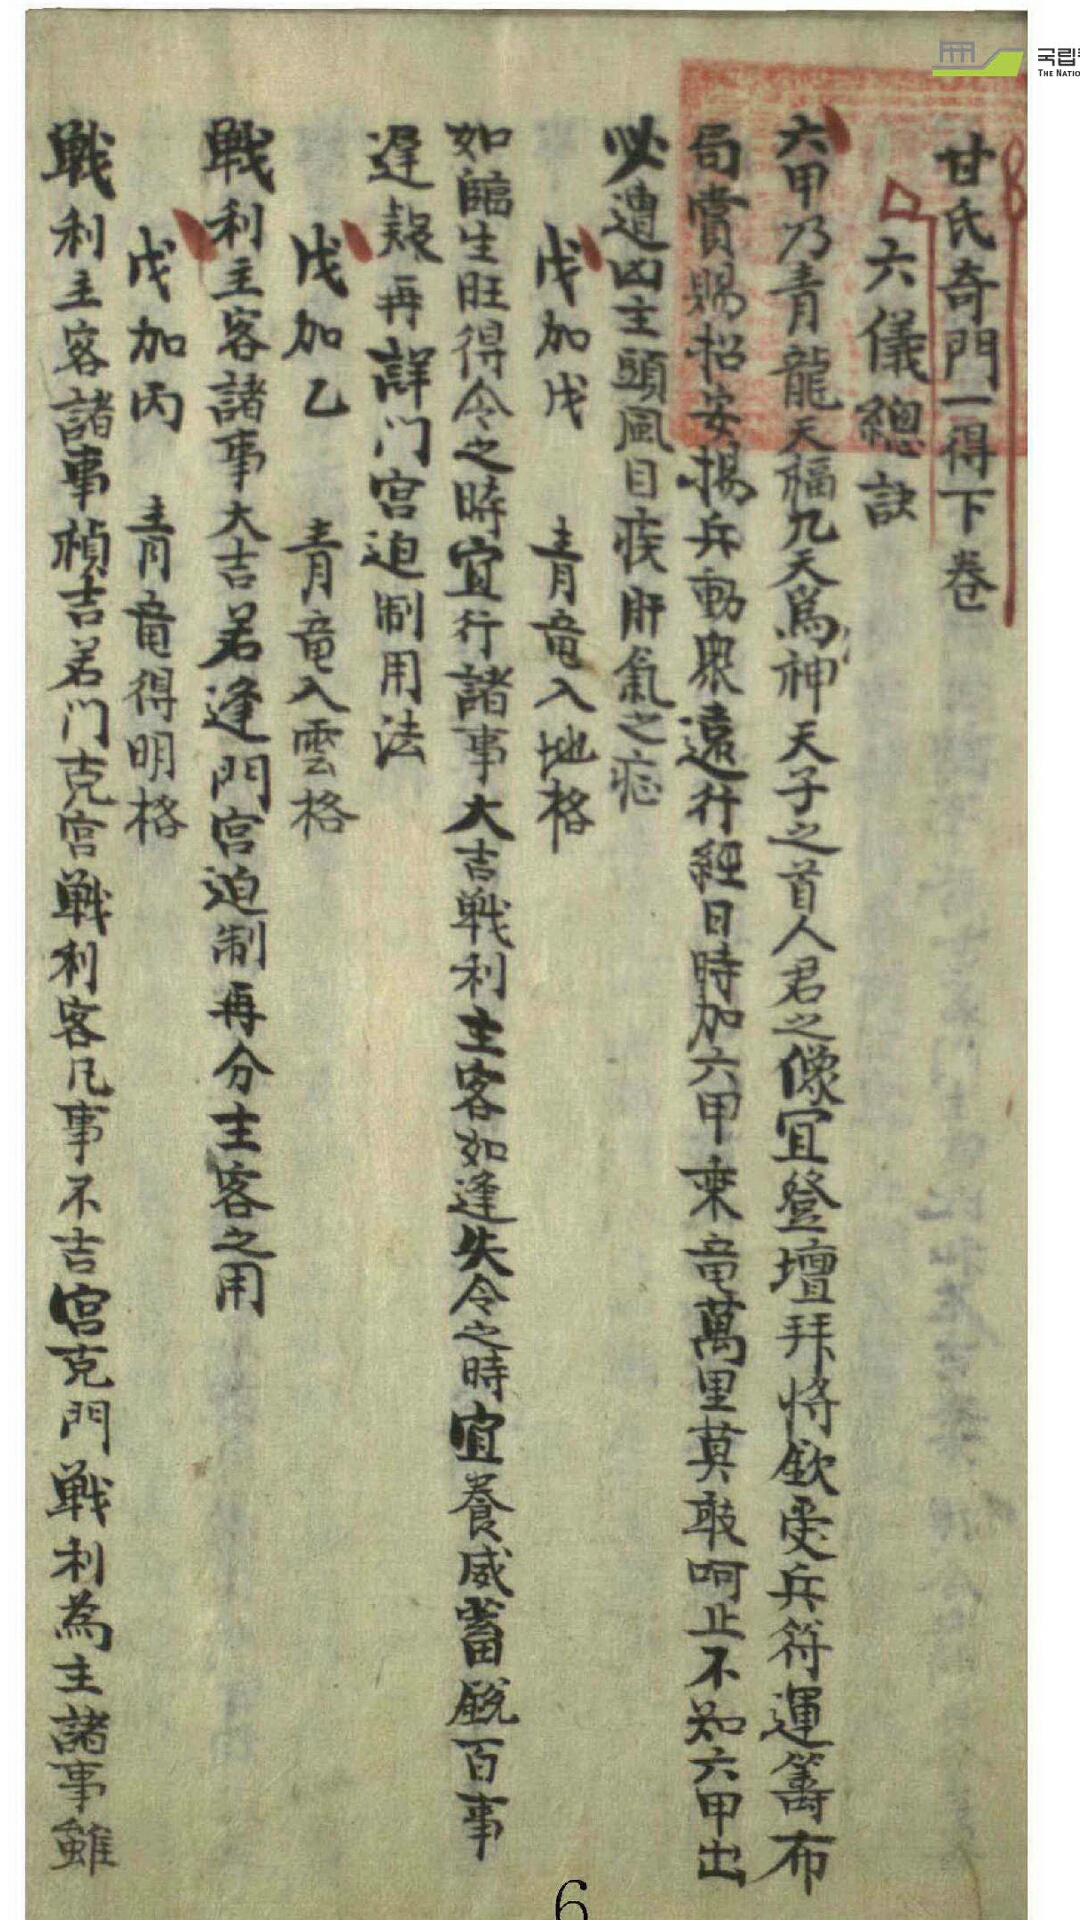 甘氏奇門一得下卷
六儀總訣
六甲乃青龍天福九天爲神天子之首人君之像宜登壇拜將欽受兵符運籌布
局賞賜招安揚兵動衆遠行經日時加六甲乗竜萬里莫敢呵止不知六甲出
必遭凶主頭風目疾肝氣之症
戊加戊 青竜入地格
如臨生旺得令之時宜行諸事大吉戦利主客如逢失令之時宜養威蓄銳百事
遲疑再詳门宫迫制用法
戊加乙 青竜入雲格
戰利主客諸事大吉若逢門宫迫制再分主客之用
戊加丙 青竜得明格
戰利主客諸事禎吉若门克宫戦利客凡事不吉宫克門戦利為主諸事雖
국립
THE NATIO
6